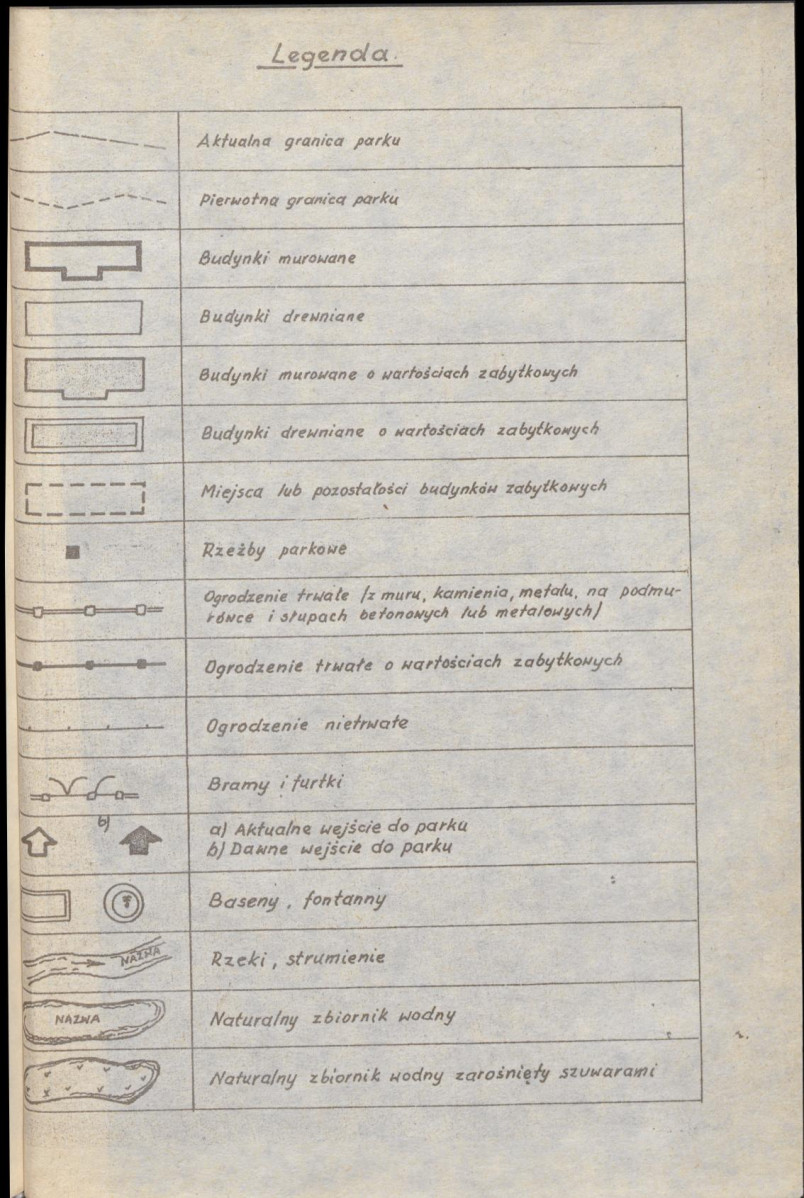 Legenda.
Aktualna granica parku
Pierwotna granica parku
Budynki murowane
Budynki drewniane
Budynki murowane o wartościach zabytkowych
Budynki drewniane o wartościach zabytkowych
Miejsca lub pozostałości budynków zabytkowych
Rzeźby parkowe
Ogrodzenie trwałe /z muru, kamienia, metalu, na podmu-
rówce i słupach betonowych lub metalowych/
Ogrodzenie trwałe o wartościach zabytkowych
Ogrodzenie nietrwałe
Bramy i furtki
b)
a) Aktualne wejście do parku
b) Dawne wejście do parku
Baseny, fontanny
NAZWA
Rzeki, strumienie
NAZWA
Naturalny zbiornik wodny
Naturalny zbiornik wodny zarośnięty szuwarami